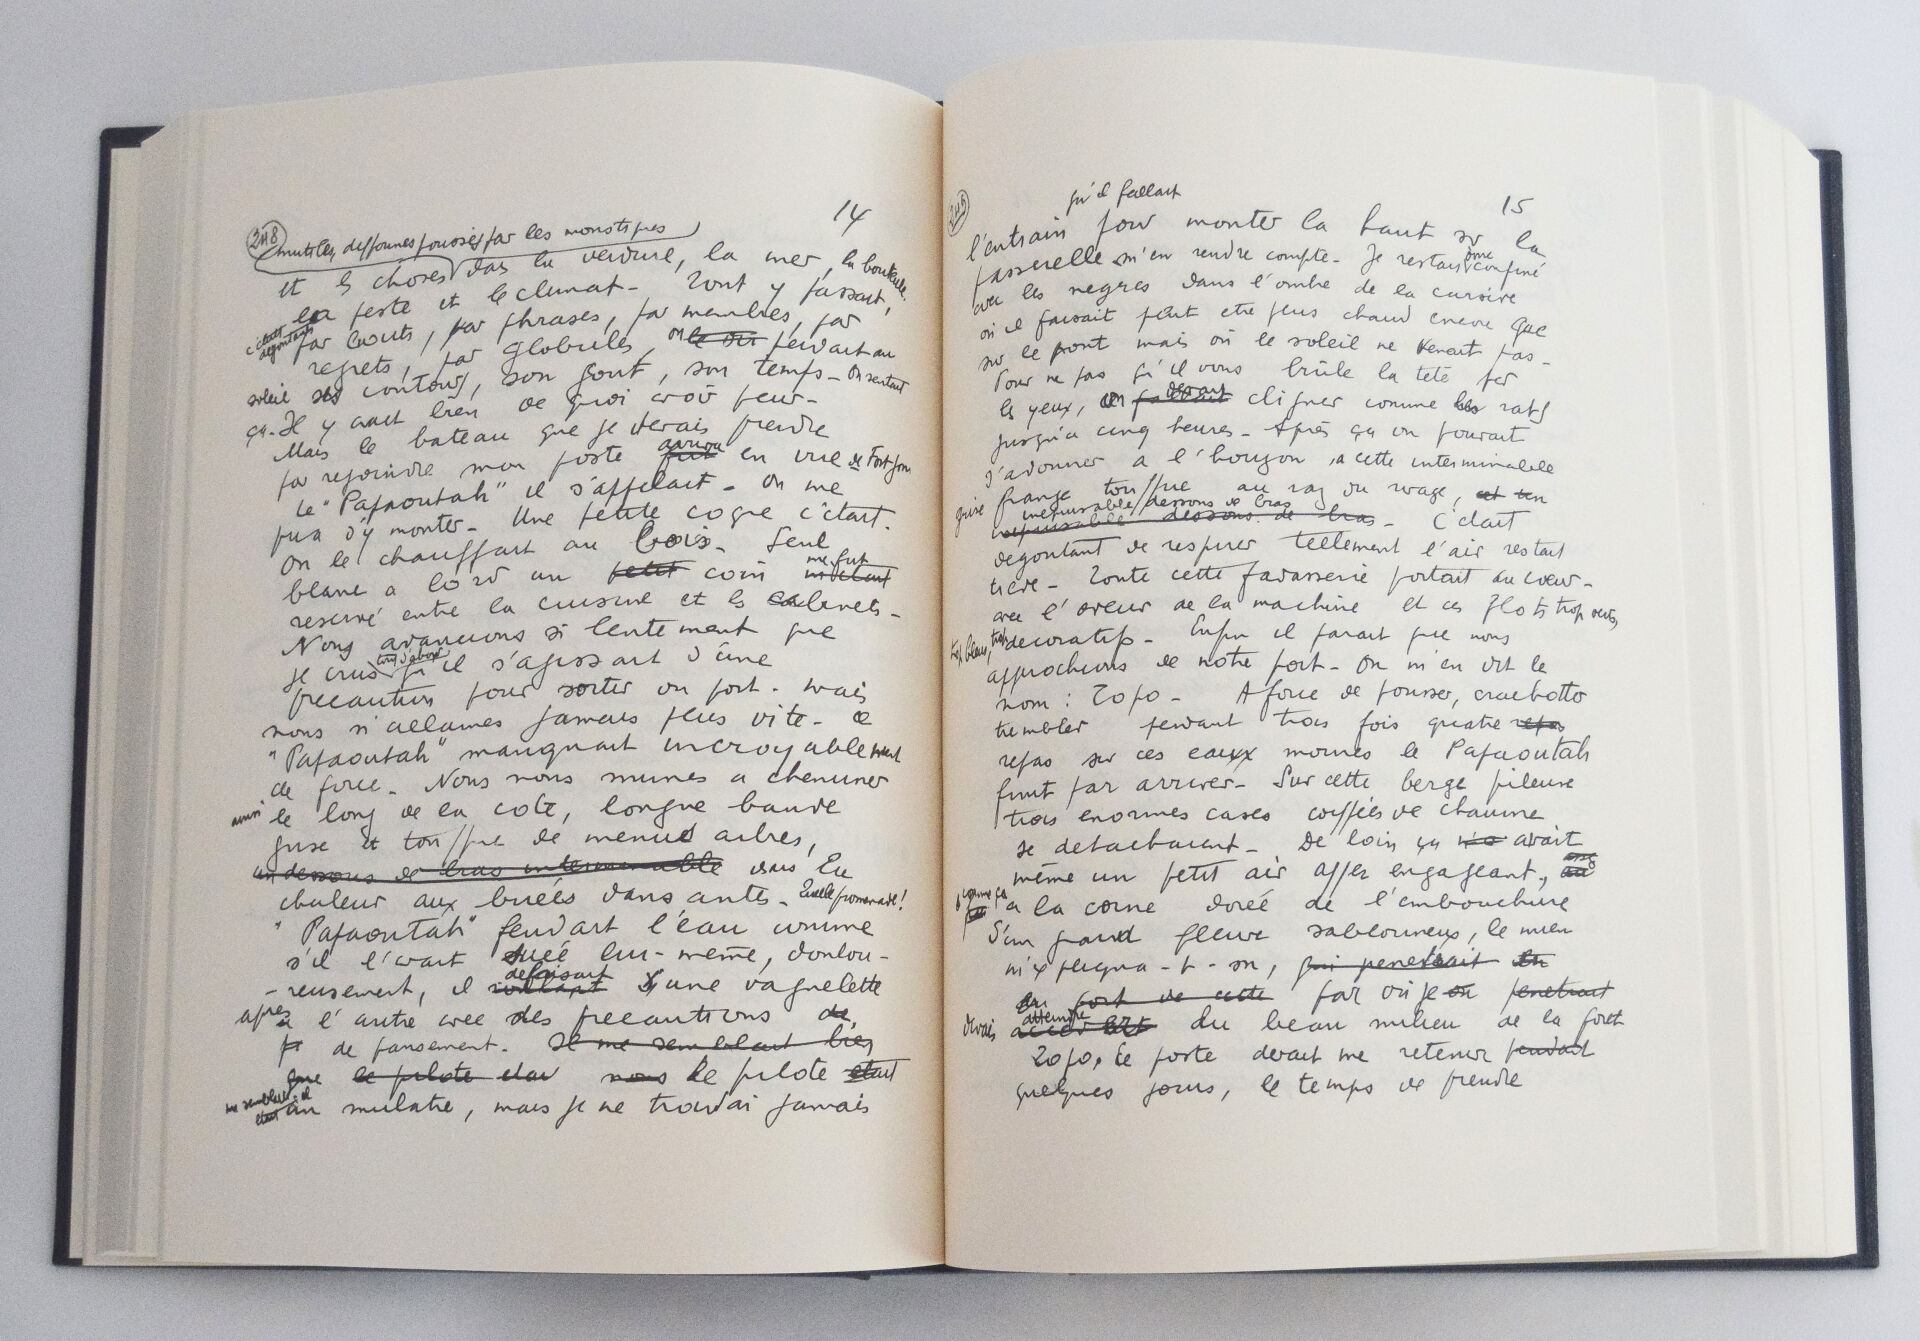 14
248
mutilés, difformes poussés par les moustiques
et les choses dans la verdure, la mer, la bouteille.
la peste et le climat - Tout y passait,
c'était dégoutant par bouts, par phrases, par membres, par
regrets, par globules, on le on perdait au
soleil ses contours, son gout, son temps - On sentait
ça - Il y avait bien de quoi avoir peur -
Mais le bateau que je devais prendre
par rejoindre mon poste fut arriva en vue de Fort Gon
le "Papaoutah" il s'appelait - On me
pria d'y monter - Une petite coque c'était.
On le chauffait au bois - Seul
blanc a bord un petit coin m'était me fut
reservé entre la cuisine et les cabinets -
Nous avancions si lentement que
je crus tout d'abord qu'il s'agissait d'une
precaution pour sortir du port - Mais
nous n'allames jamais plus vite - Le
"Papaoutah" manquait incroyablement
de force - Nous nous mimes a cheminer
ainsi le long de la cote, longue bande
grise et touffue de menus arbres,
un dessous de bras interminable dans la
chaleur aux buées dansantes - Quelle promenade!
"Papaoutah" fendait l'eau comme
s'il l'avait suée lui-même, doulou-
-reusement, il défaisait une vaguelette
apres l'autre avec des precautions de
de pansement. Il me semblait bien
que le pilote etai nous Le pilote etait
me semblait-il etait un mulatre, mais je ne trouvai jamais
15
249
qu'il fallait
l'entrain pour monter la haut sur la
passerelle m'en rendre compte - Je restais donc confiné
avec les negres dans l'ombre de la cursive
où il faisait peut etre plus chaud encore que
sur le pont mais où le soleil ne venait pas -
Pour ne pas qu'il vous brûle la tete par
les yeux, on fallait devait cligner comme les rats
jusqu'a cinq heures - Après ça on pouvait
s'adonner a l'horizon, a cette interminable
grise frange touffue au raz du rivage, et un
inepuisable dessous de bras
inepuisable dessous de bras - C'était
degoutant de respirer tellement l'air restait
tiede - Toute cette fadasserie portait au coeur -
avec l'odeur de la machine et ces flots trop verts,
trop bleus, trop decoratifs - Enfin il parait que nous
approchions de notre port - On m'en dit le
nom : Topo - A force de pousser, crachotter
trembler pendant trois fois quatre repas
repas sur ces eaux mornes le Papaoutah
finit par arriver - Sur cette berge pileuse
trois enormes cases coiffées de chaume
se detachaient - De loin ça avait
même un petit air assez engageant,
a la corne dorée de l'embouchure
d'un grand fleuve sablonneux, le mien
m'expliqua-t-on, qui penetrait
du fort de cette par où je on penetrait
devais atteindre du beau milieu de la forêt
Topo, ce poste devait me retenir pendant
quelques jours, le temps de prendre